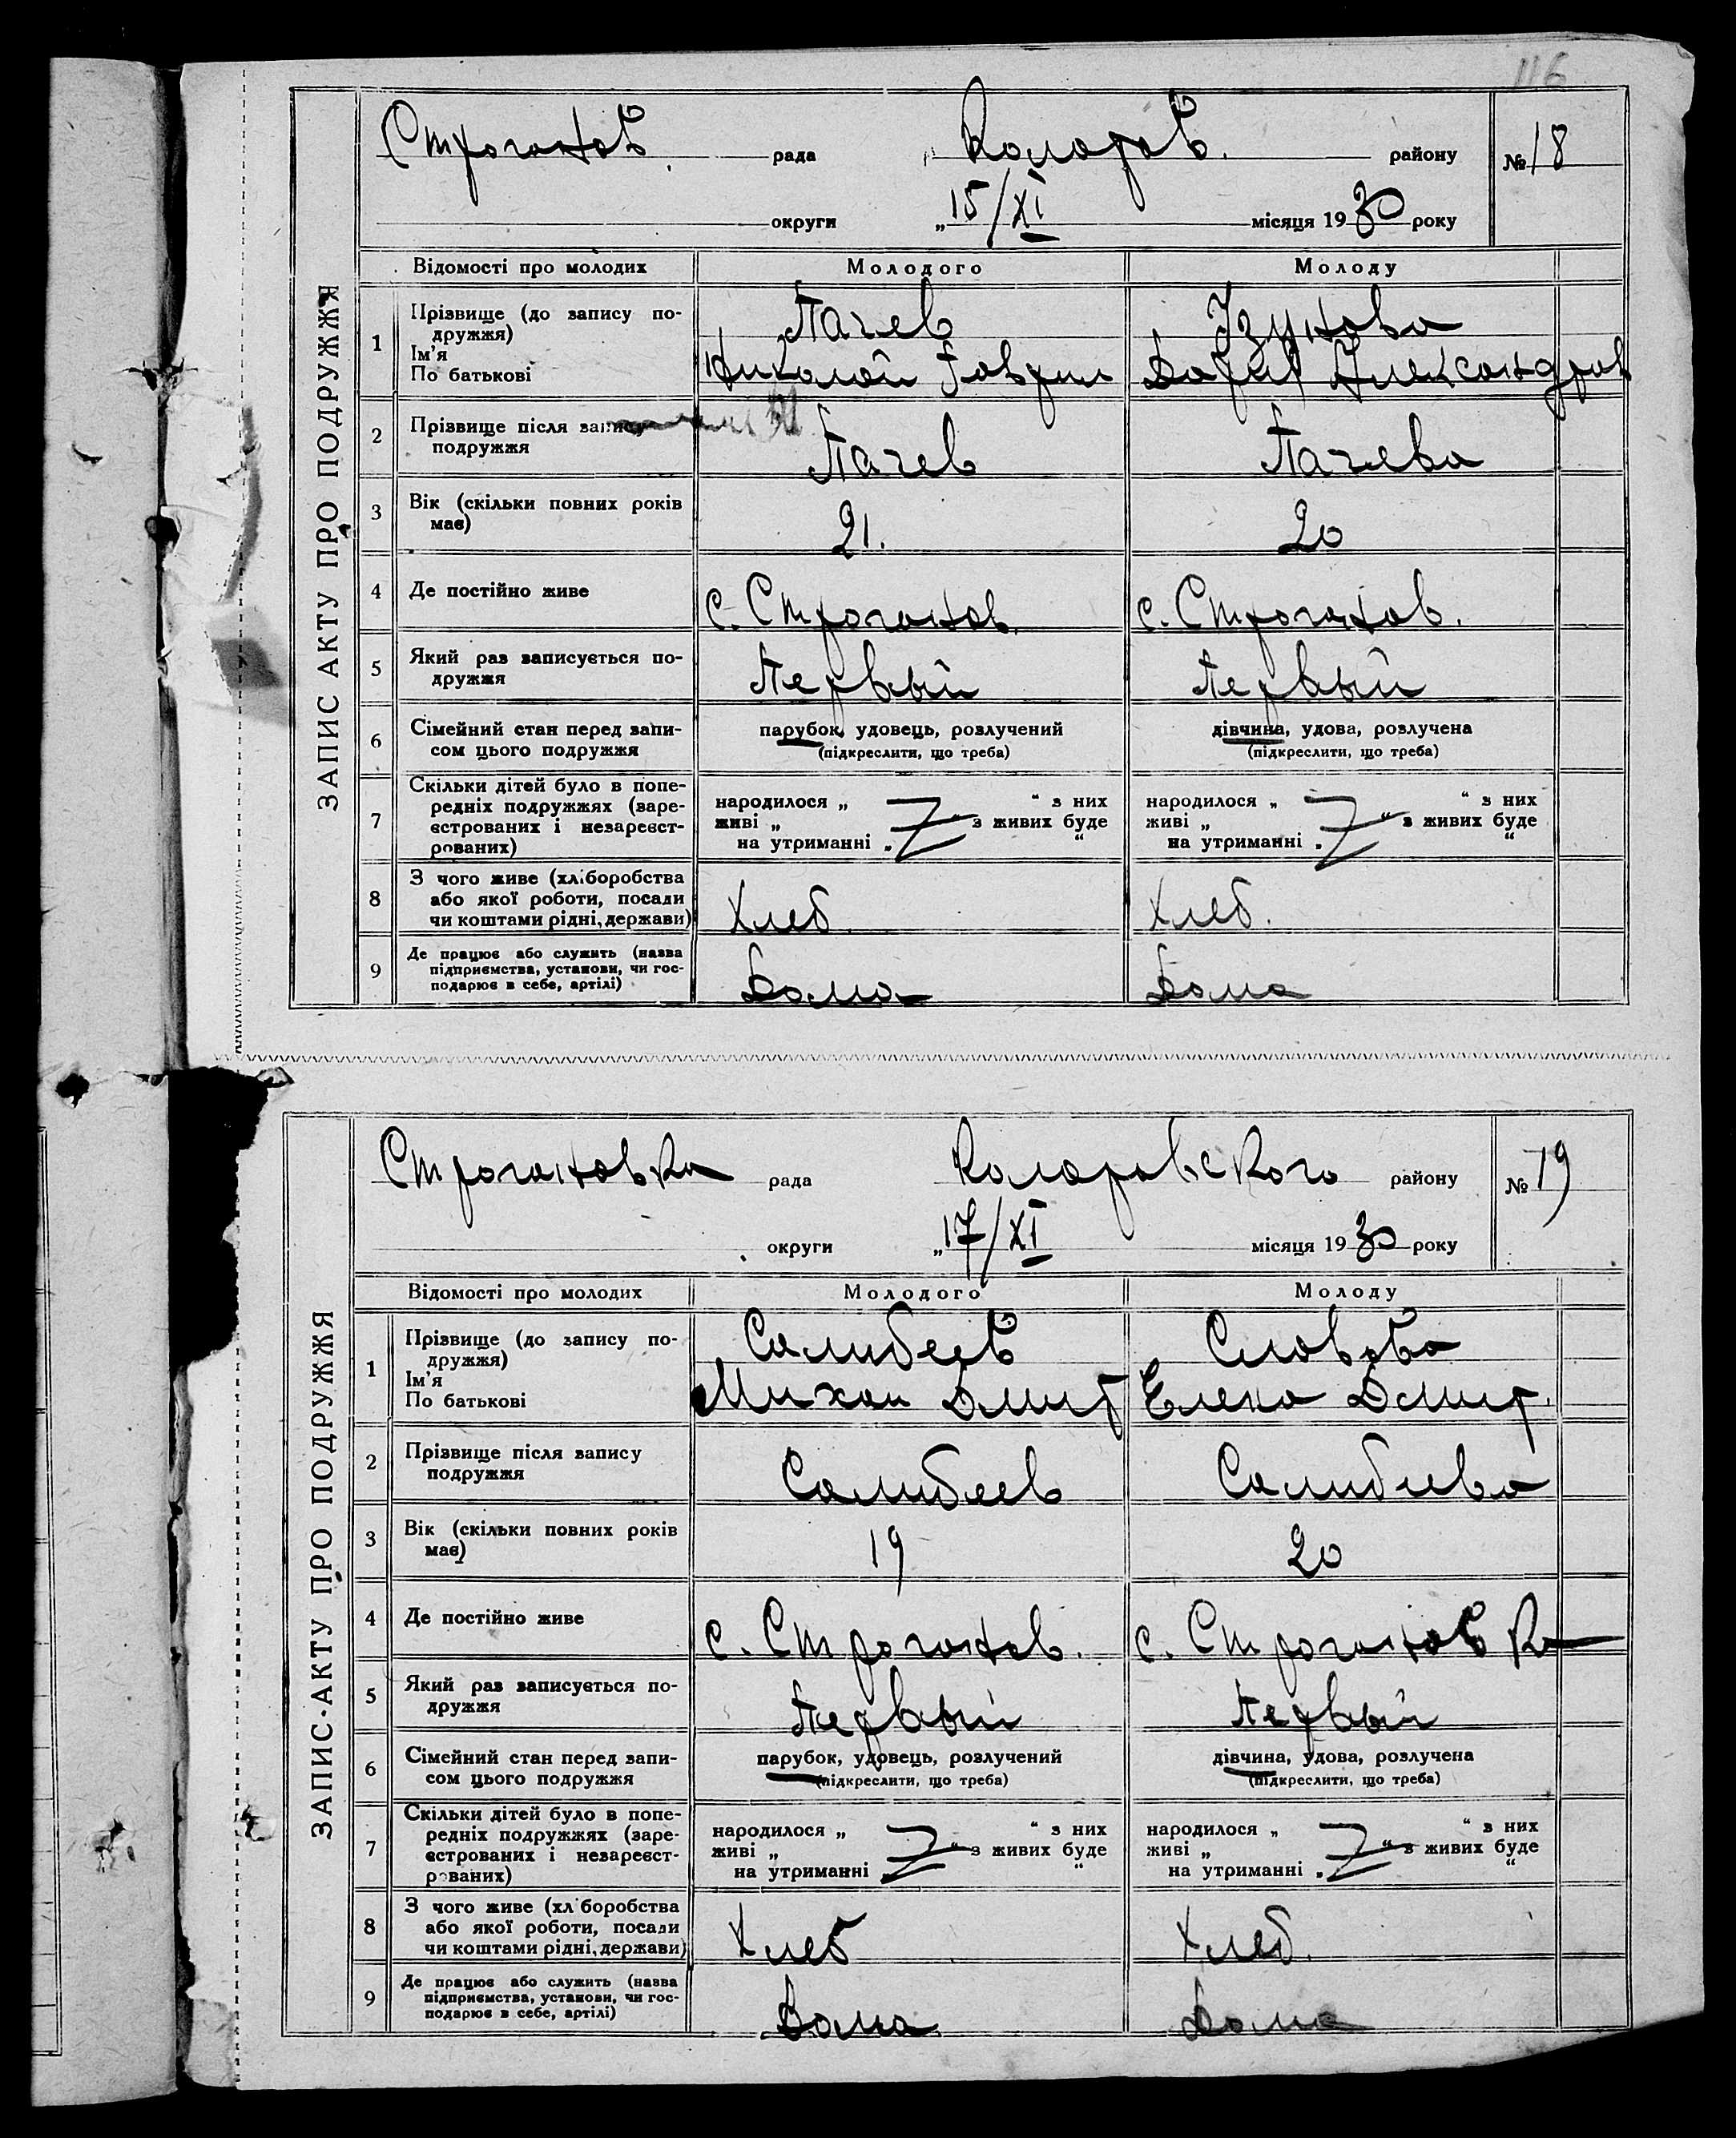 116
ЗАПИС АКТУ ПРО ПОДРУЖЖЯ
Строганов. рада „ Коларов. району № 18
округи „ 15/XI місяця 1930 року
Відомості про молодих Молодого Молоду
1 Прізвище (до запису по-
дружжя)
Ім'я
По батькові
Пачев
Николай Гаврил
Узунова
Дария Александров
2 Прізвище після запису
подружжя
Пачев
Пачева
3 Вік (скільки повних років
має)
21.
20
4 Де постійно живе
с. Строганов.
с. Строганов.
5 Який раз записується по-
дружжя
Первый
Первый
6 Сімейний стан перед запи-
сом цього подружжя
парубок, удовець, розлучений
(підкреслити, що треба)
дівчина, удова, розлучена
(підкреслити, що треба)
7 Скільки дітей було в попе-
редніх подружжях (заре-
єстрованих і незареєст-
рованих)
народилося „ “ з них
живі „ “ з живих буде
на утриманні „ “
народилося „ “ з них
живі „ “ з живих буде
на утриманні „ “
8 З чого живе (хліборобства
або якої роботи, посади
чи коштами рідні, держави)
Хлеб.
Хлеб.
9 Де працює або служить (назва
підприємства, установи, чи гос-
подарює в себе, артілі)
Дома
Дома
ЗАПИС-АКТУ ПРО ПОДРУЖЖЯ
Строгановка рада Коларовского району № 19
округи „ 17/XI місяця 1930 року
Відомості про молодих Молодого Молоду
1 Прізвище (до запису по-
дружжя)
Ім'я
По батькові
Салибеев
Михаи Дмит
Словова
Елена Дмит.
2 Прізвище після запису
подружжя
Салибеев
Салибиева
3 Вік (скільки повних років
має)
19
20
4 Де постійно живе
с. Строганов.
с. Строгановка
5 Який раз записується по-
дружжя
Первый
Первый
6 Сімейний стан перед запи-
сом цього подружжя
парубок, удовець, розлучений
(підкреслити, що треба)
дівчина, удова, розлучена
(підкреслити, що треба)
7 Скільки дітей було в попе-
редніх подружжях (заре-
єстрованих і незареєст-
рованих)
народилося „ “ з них
живі „ “ з живих буде
на утриманні „ “
народилося „ “ з них
живі „ “ з живих буде
на утриманні „ “
8 З чого живе (хліборобства
або якої роботи, посади
чи коштами рідні, держави)
Хлеб
Хлеб.
9 Де працює або служить (назва
підприємства, установи, чи гос-
подарює в себе, артілі)
Дома
Дома